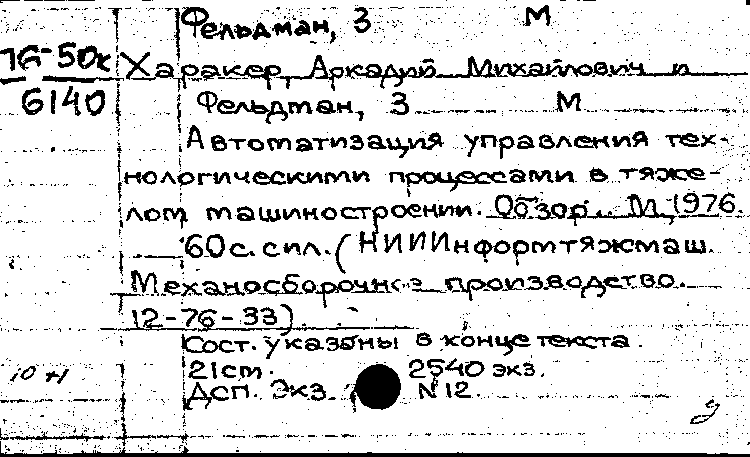 Фельдман, З М
76-50к
6140
Харакер, Аркадий Михайлович и
Фельдман, З М
Автоматизация управления тех-
нологическими процессами в тяже-
лом машиностроении. Обзор. М., 1976.
60 с. с ил. (НИИИнформтяжмаш.
Механосборочное производство.
12-76-33)
Сост. указаны в конце текста.
21 см. 2540 экз.
ДСП. Экз. N 12.
10 +1